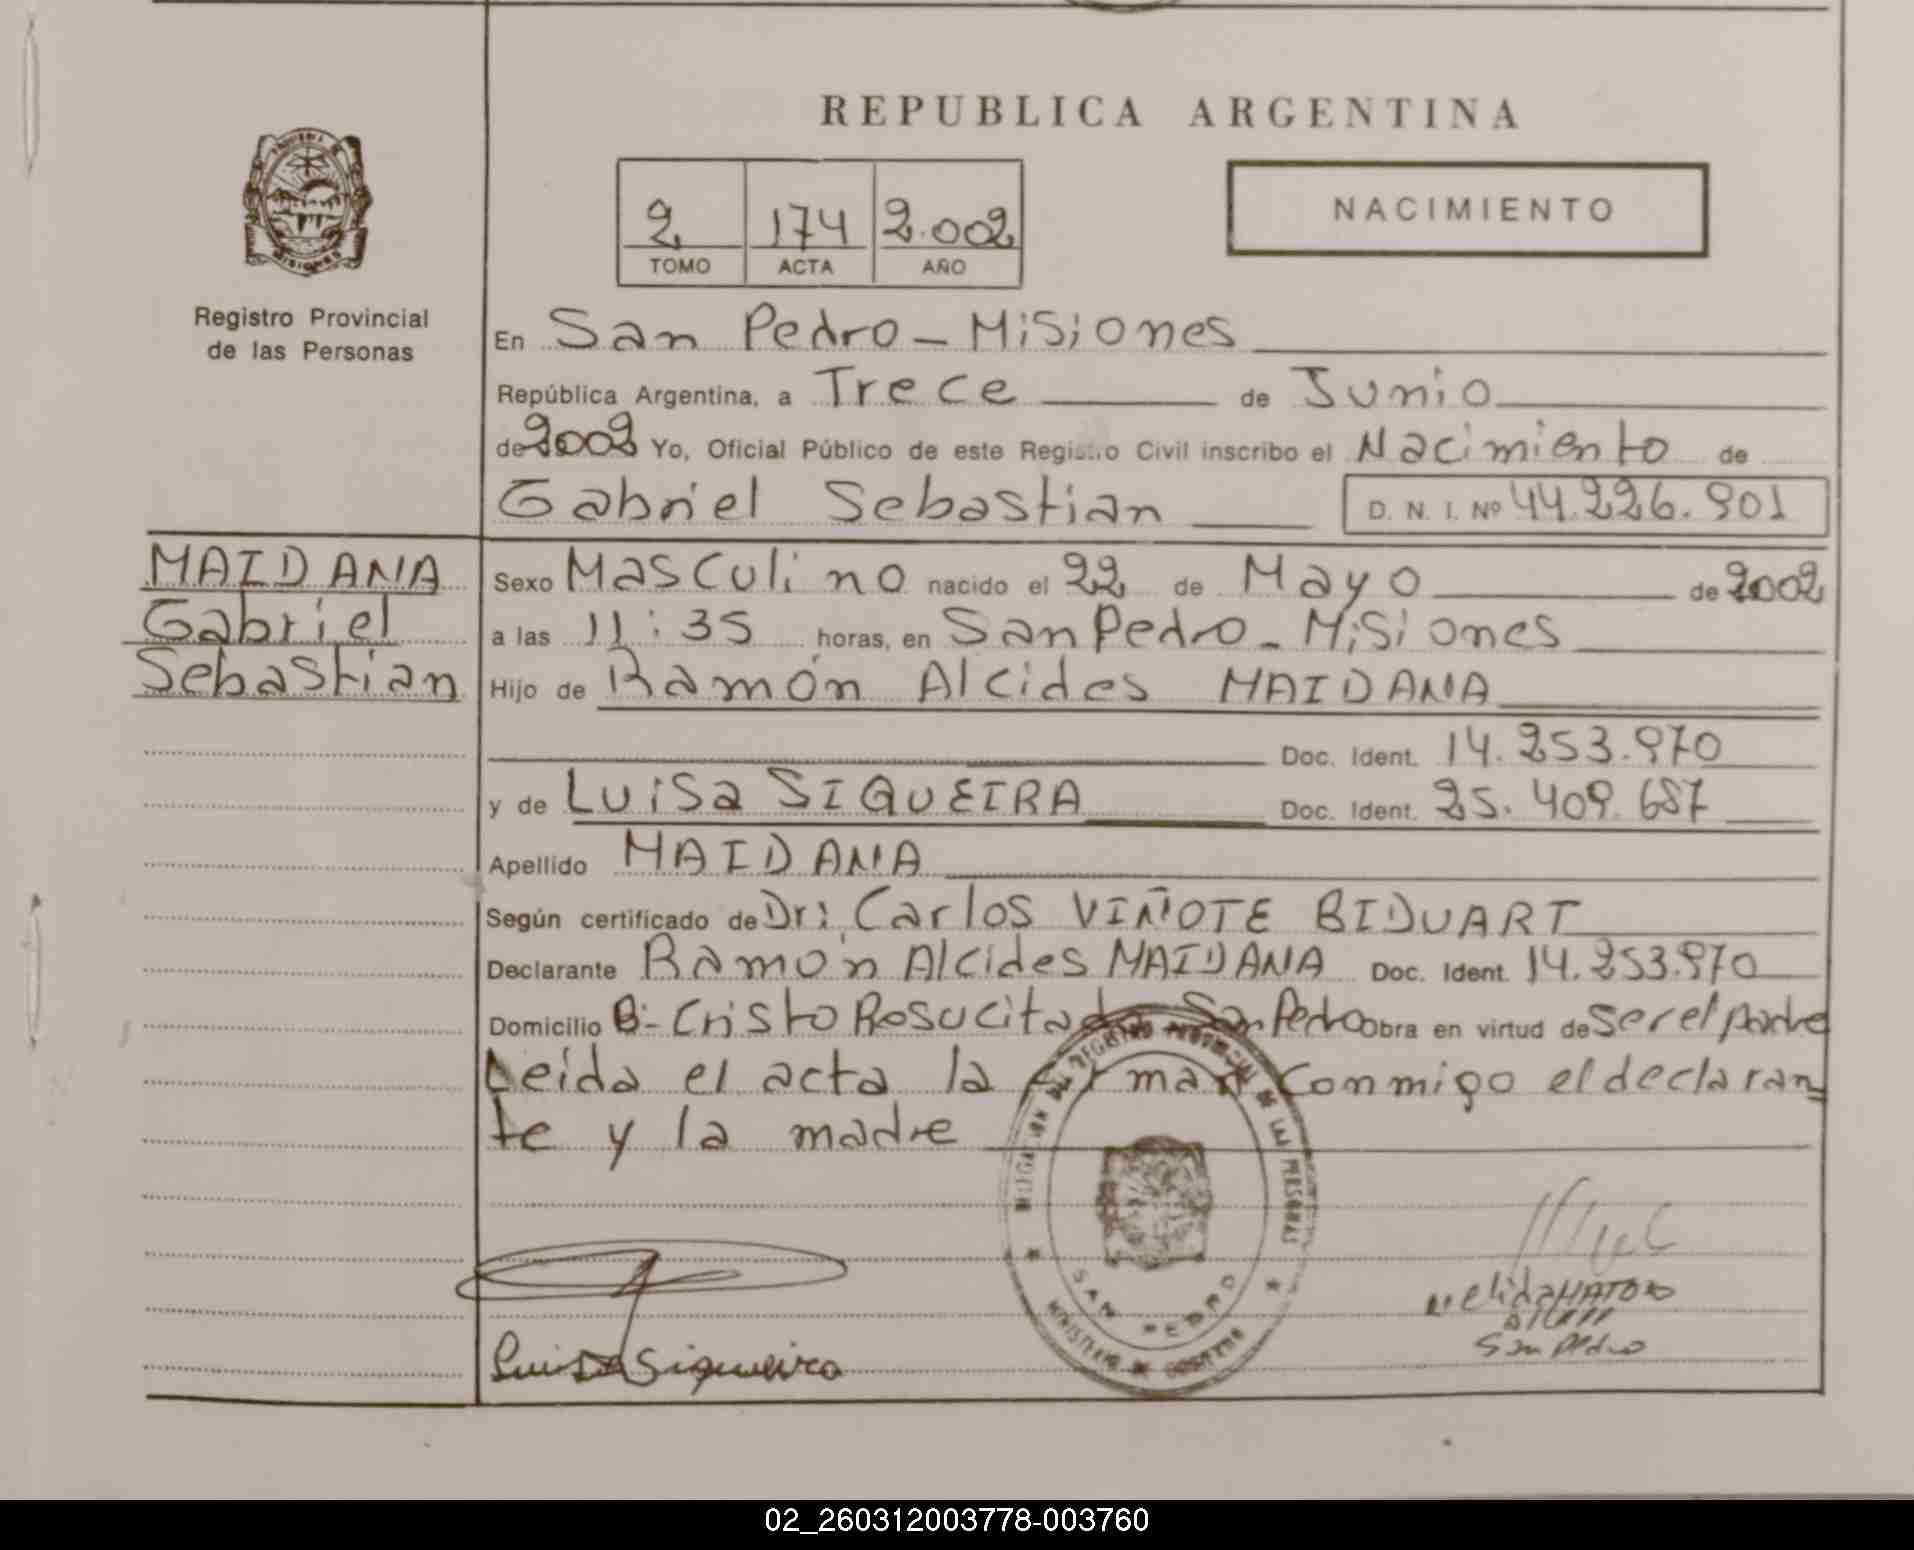 REPUBLICA ARGENTINA
2 174 2.002
TOMO ACTA AÑO
NACIMIENTO
MISIONES
Registro Provincial
de las Personas
En San Pedro - Misiones
República Argentina, a Trece de Junio
de 2002 Yo, Oficial Público de este Registro Civil inscribo el Nacimiento de
Gabriel Sebastian D. N. I. Nº 44.226.901
MAIDANA
Gabriel
Sebastian
Sexo Masculino nacido el 22 de Mayo de 2002
a las 11:35 horas, en San Pedro - Misiones
Hijo de Ramón Alcides MAIDANA
Doc. Ident. 14.253.970
y de Luisa SIQUEIRA Doc. Ident. 25.409.687
Apellido MAIDANA
Según certificado de Dr: Carlos VIÑOTE BIDUART
Declarante Ramón Alcides MAIDANA Doc. Ident. 14.253.970
Domicilio B:- Cristo Resucitado San Pedro Obra en virtud de ser el padre
Leida el acta la firman conmigo el declaran
te y la madre
DELEGACION DEL REGISTRO PROVINCIAL DE LAS PERSONAS
SAN PEDRO
MINISTERIO DE GOBIERNO
Luisa Siqueira
San Pedro
02_260312003778-003760